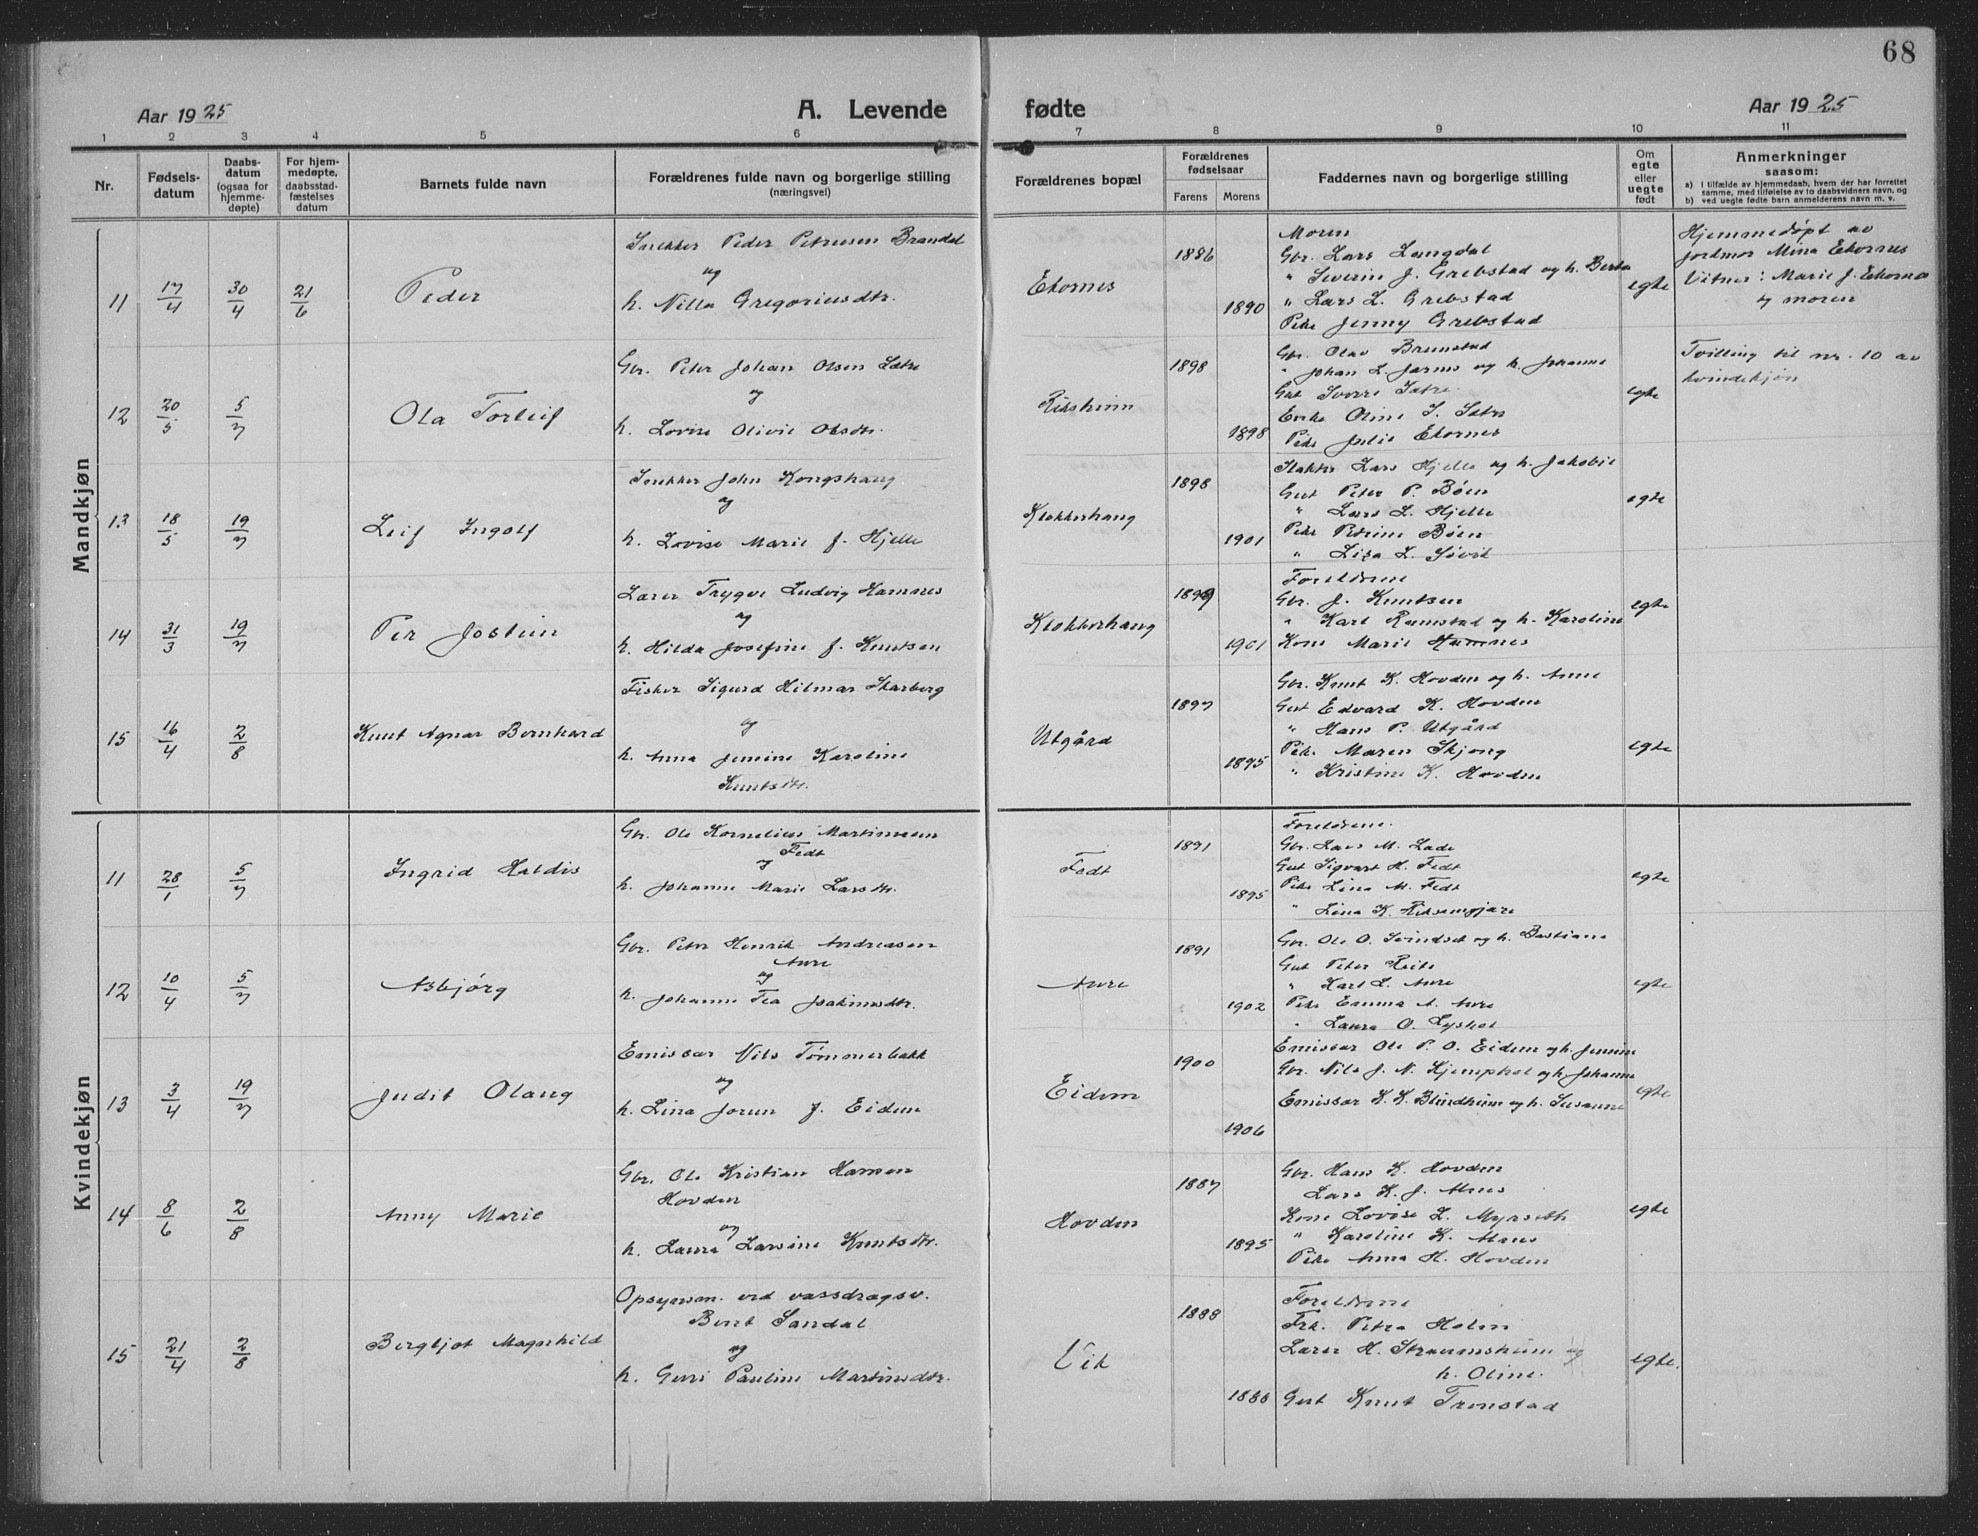 68
Aar 1925
A. Levende fødte
Aar 1925
1 2 3 4 5 6 7 8 9 10 11
Nr.
Fødsels-
datum
Daabs-
datum
(ogsaa for
hjemme-
døpte)
For hjem-
medøpte,
daabsstad-
fæstelses
datum
Barnets fulde navn
Forældrenes fulde navn og borgerlige stilling
(næringsvei)
Forældrenes bopæl
Forældrenes
fødselsaar
Farens
Morens
Faddernes navn og borgerlige stilling
Om
egte
eller
uegte
født
Anmerkninger
saasom:
a) I tilfælde av hjemmedaab, hvem der har forrettet
samme, med tilføielse av to daabsvidners navn, og
b) ved uegte fødte barn anmelderens navn m. v.
Mandkjøn
11
17/4
30/4
21/6
Peder
Snekker Peder Petersen Brandal
og
h. Nilla Gregoriusdtr.
Ekornes
1886
1890
Moren
Gbr. Lars Langdal
" Severin J. Grebstad og h. Berta
" Lars L. Grebstad
Pike Jenny Grebstad
egte
Hjemmedøpt av
jordmor Mina Ekornes
Vitner: Marie J. Ekornes
og moren
12
20/5
5/7
Ola Torleif
Gbr. Peter Johan Olsen Sætre
og
h. Lovise Olivie Olsdtr.
Riksheim
1898
1898
Gbr. Olav Brunstad
" Johan L. Jarnes og h. Johanne
Gut Sverre Sætre
Enke Oline S. Sætre
Pike Julie Ekornes
egte
Tvilling til nr. 10 av
kvindekjøn
13
18/5
19/7
Leif Ingolf
Snekker John Kongshaug
og
h. Lovise Marie f. Hjelle
Klokkerhaug
1898
1901
Slakter Lars Hjelle og h. Jakobie
Gut Peter P. Bøen
" Lars L. Hjelle
Pike Petrine Bøen
" Lisa L. Søvik
egte
14
31/3
19/7
Per Jostein
Lærer Trygve Ludvig Hamnes
og
h. Hilda Josefine f. Knutsen
Klokkerhaug
1899
1901
Foreldrene
Gbr. J. Knutsen
" Karl Ramstad og h. Karoline
Kone Marie Hamnes
egte
15
16/4
2/8
Knut Agnar Bernhard
Fisker Sigurd Hilmar Skarberg
og
h. Anna Jensine Karoline
Knutsdtr.
Utgård
1897
1895
Gbr. Knut K. Hovden og h. Anne
Gut Edvard K. Hovden
" Hans P. Utgård
Pike Maren Skjong
" Kristine K. Hovden
egte
Kvindekjøn
11
28/1
5/7
Ingrid Heldis
Gbr. Ole Kornelius Martinussen
Fedt
og
h. Johanne Marie Larsdtr.
Fedt
1891
1895
Foreldrene.
Gbr. Lars M. Lade
Gut Sigvart H. Fedt
Pike Lina M. Fedt
" Lina K.
egte
12
10/4
5/7
Asbjørg
Gbr. Peter Henrik Andreassen
Aure
og
h. Johanne Tea Joakimsdtr.
Aure
1891
1902
Gbr. Ole O. Svindset og h. Bastiane
Gut Peter Reite
" Karl L. Aure
Pike Emma A. Aure
" Laura O. Lyshol
egte
13
3/4
19/7
Judit Olaug
Emissær Nils Tømmerbakk
og
h. Lina Jorun f. Eidem
Eidem
1900
1906
Emissær Ole P. O. Eidem og h. Jensine
Gbr. Nils J. N. Kjemphol og h. Johanne
Emissær K. K. Blindheim og h. Susanne
egte
14
8/6
2/8
Anny Marie
Gbr. Ole Kristian Hansen
Hovden
og
h. Laura Larsine Knutsdtr.
Hovden
1887
1895
Gbr. Hans K. Hovden
Lars K. J. Alnes
Kone Lovise L. Myrseth
" Karoline K. Alnes
Pike Anna H. Hovden
egte
15
21/4
2/8
Bergljot Magnhild
Opsynsm. ved vassdragsv.
Bernt Sandal
og
h. Guri Pauline Martinsdtr.
Vik
1888
1888
Foreldrene
Frk. Petra Holen
Lærer H. Straumsheim og
h. Oline.
Gut Knut Tronstad
egte.